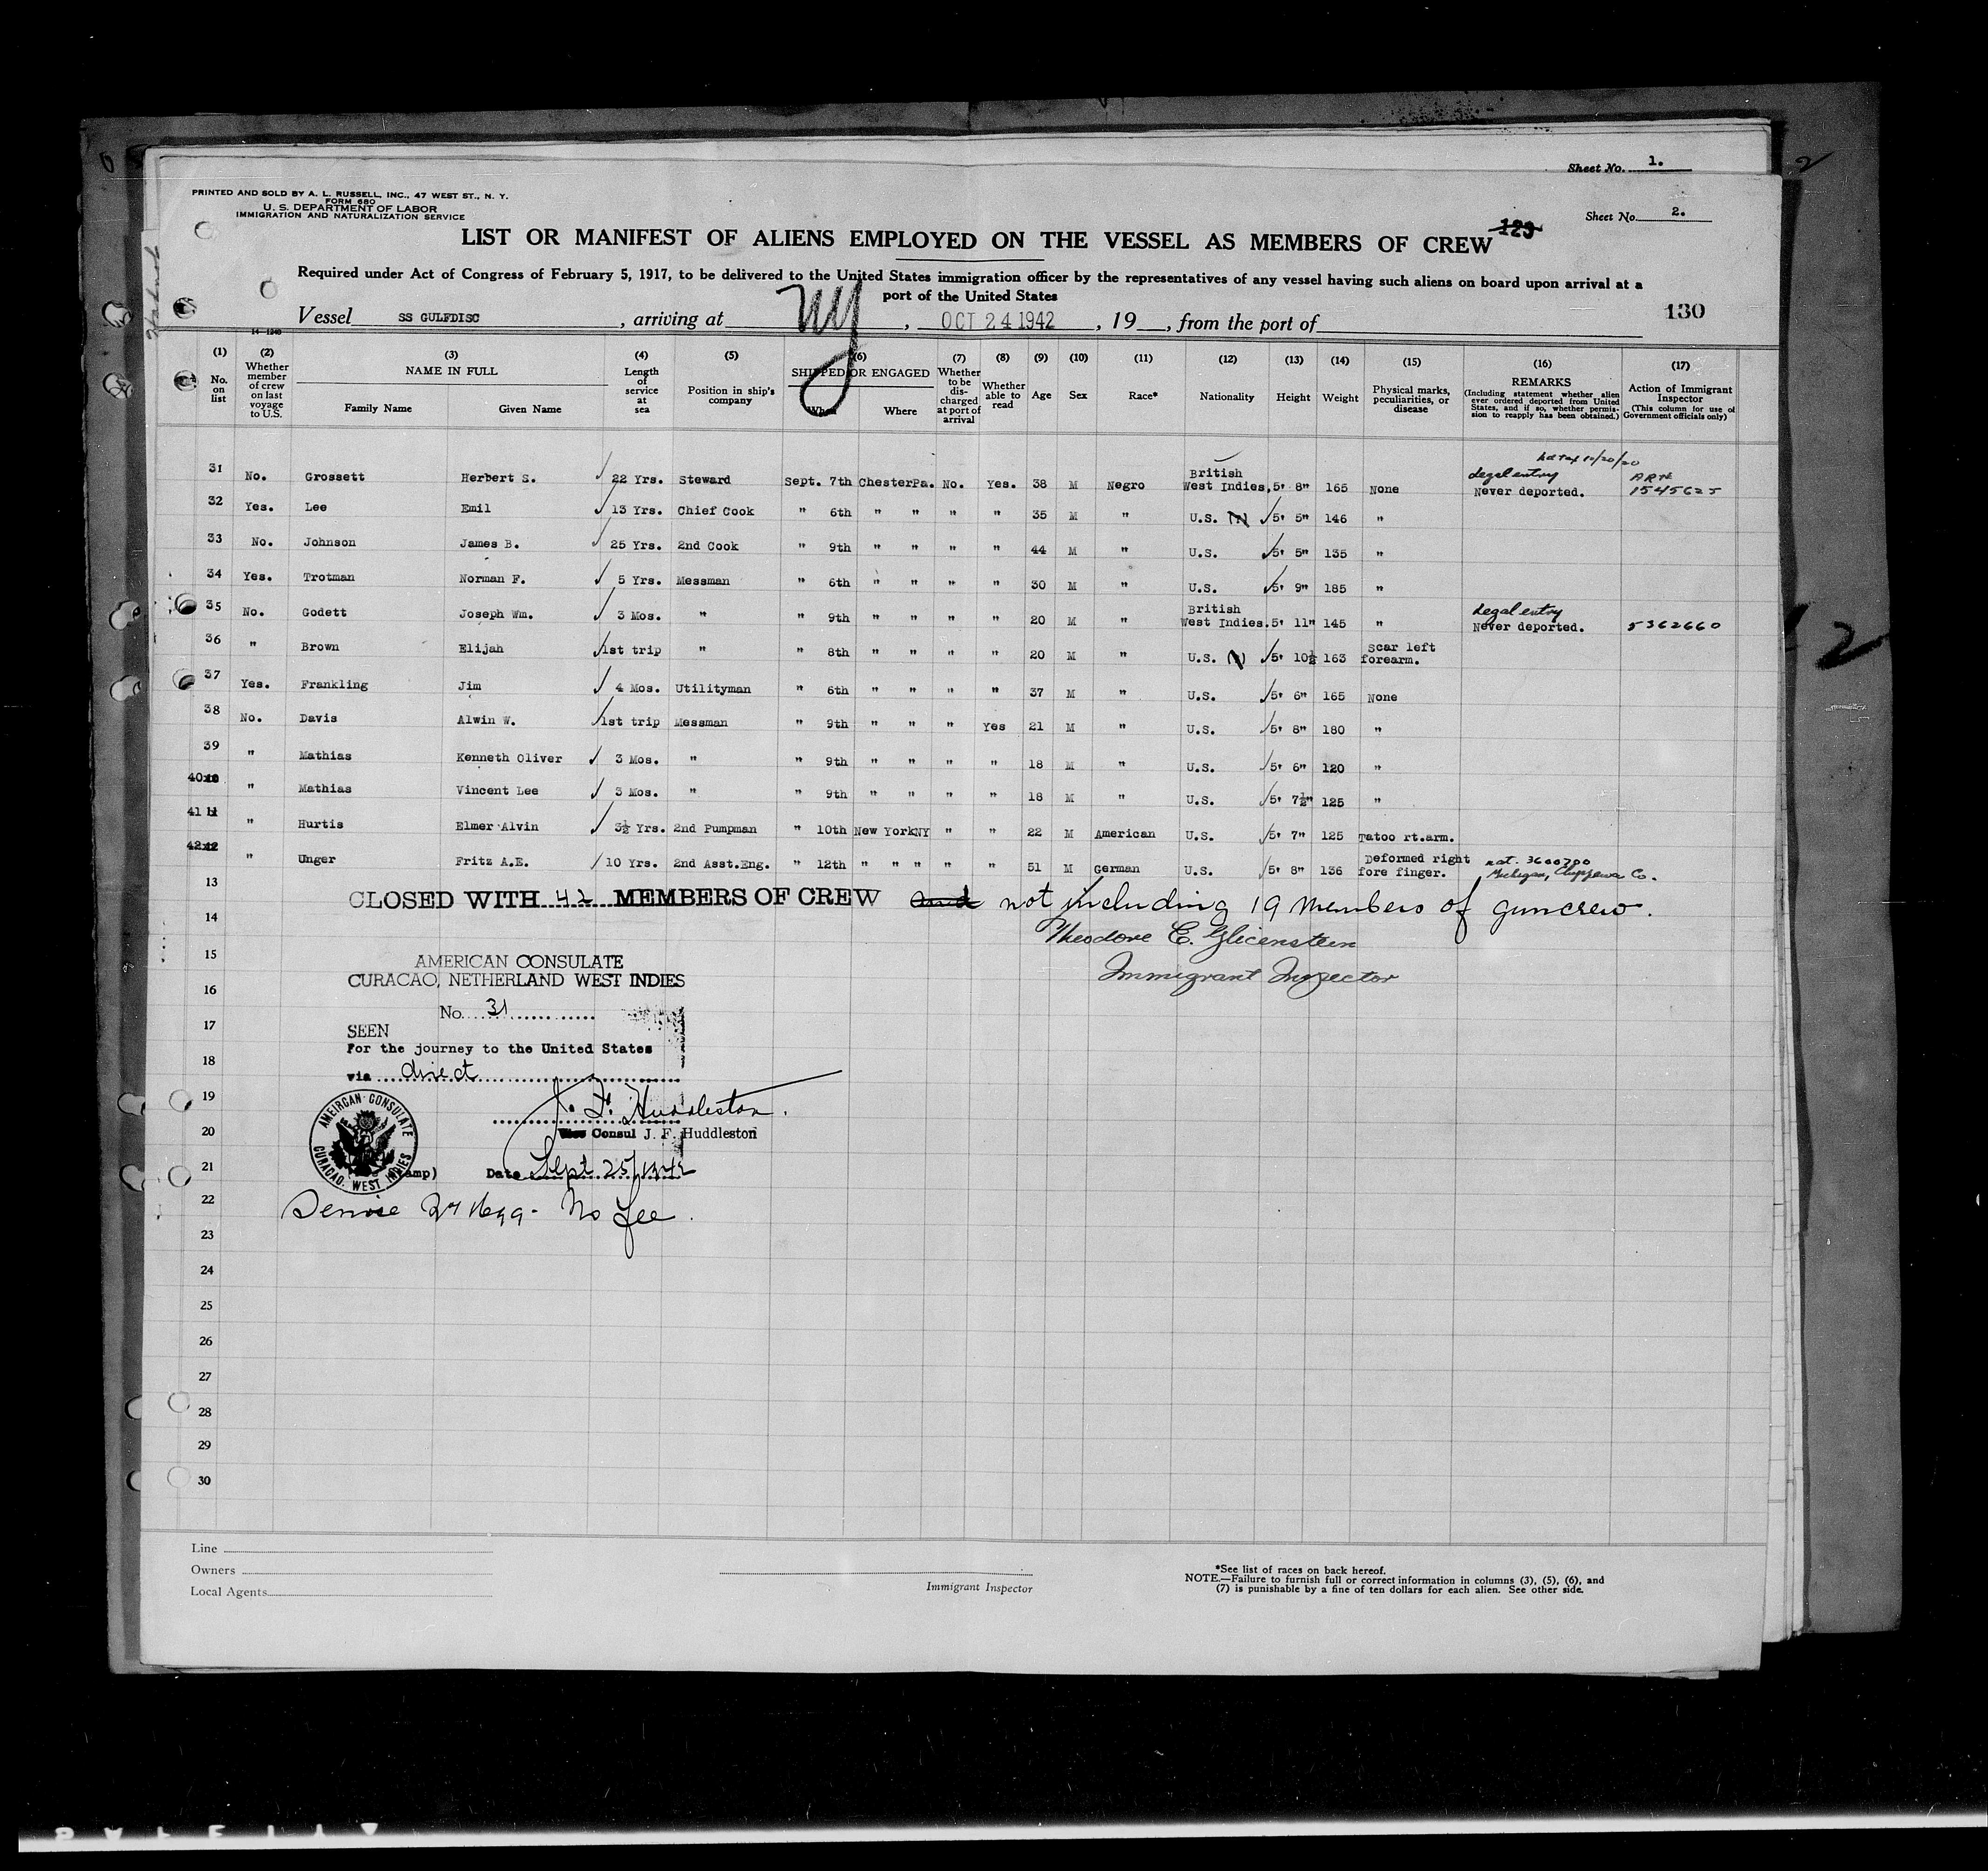 Sheet No. 1.
PRINTED AND SOLD BY A. L. RUSSELL, INC., 47 WEST ST., N. Y.
FORM 680
U. S. DEPARTMENT OF LABOR
IMMIGRATION AND NATURALIZATION SERVICE
Sheet No. 2.
LIST OR MANIFEST OF ALIENS EMPLOYED ON THE VESSEL AS MEMBERS OF CREW 129
Required under Act of Congress of February 5, 1917, to be delivered to the United States immigration officer by the representatives of any vessel having such aliens on board upon arrival at a
port of the United States
Vessel SS GULFDISC , arriving at NY , OCT 24 1942 , 19 , from the port of 130
14-1240
(1) No. on list
(2) Whether member of crew on last voyage to U.S.
(3) NAME IN FULL Family Name Given Name
(4) Length of service at sea
(5) Position in ship's company
(6) SHIPPED OR ENGAGED When Where
(7) Whether to be discharged at port of arrival
(8) Whether able to read
(9) Age
(10) Sex
(11) Race*
(12) Nationality
(13) Height
(14) Weight
(15) Physical marks, peculiarities, or disease
(16) REMARKS (Including statement whether alien ever ordered deported from United States, and if so, whether permission to reapply has been obtained.)
(17) Action of Immigrant Inspector (This column for use of Government officials only)
31 No. Grossett Herbert S. 22 Yrs. Steward Sept. 7th ChesterPa. No. Yes. 38 M Negro British West Indies. 5' 8" 165 None Legal entry Never deported. ARN 1545625
32 Yes. Lee Emil 13 Yrs. Chief Cook " 6th " " " " 35 M " U.S. 5' 5" 146 "
33 No. Johnson James B. 25 Yrs. 2nd Cook " 9th " " " " 44 M " U.S. 5' 5" 135 "
34 Yes. Trotman Norman F. 5 Yrs. Messman " 6th " " " " 30 M " U.S. 5' 9" 185 "
35 No. Godett Joseph Wm. 3 Mos. " " 9th " " " " 20 M " British West Indies. 5' 11" 145 " Legal entry Never deported. 5362660
36 " Brown Elijah 1st trip " " 8th " " " " 20 M " U.S. 5' 10½ 163 Scar left forearm.
37 Yes. Frankling Jim 4 Mos. Utilityman " 6th " " " " 37 M " U.S. 5' 6" 165 None
38 No. Davis Alwin W. 1st trip Messman " 9th " " " Yes 21 M " U.S. 5' 8" 180 "
39 " Mathias Kenneth Oliver 3 Mos. " " 9th " " " " 18 M " U.S. 5' 6" 120 "
40 " Mathias Vincent Lee 3 Mos. " " 9th " " " " 18 M " U.S. 5' 7½" 125 "
41 11 " Hurtis Elmer Alvin 3½ Yrs. 2nd Pumpman " 10th New YorkNY " " 22 M American U.S. 5' 7" 125 Tatoo rt.arm.
42 12 " Unger Fritz A.E. 10 Yrs. 2nd Asst.Eng. " 12th " " " " " 51 M German U.S. 5' 8" 136 Deformed right fore finger. nat. 3600700 Michigan, Chippewa Co.
13
CLOSED WITH 42 MEMBERS OF CREW and not including 19 members of guncrew.
14
Theodore E. Glicenstein
15
Immigrant Inspector
AMERICAN CONSULATE
CURACAO, NETHERLAND WEST INDIES
16
No. 31
17
SEEN
For the journey to the United States
18
via direct
19
J. F. Huddleston.
20
Vice Consul J. F. Huddleston
AMERICAN CONSULATE CURACAO, WEST INDIES
21
amp) Date Sept 25/1942
22
No fee.
23
24
25
26
27
28
29
30
Line
Owners
Local Agents
Immigrant Inspector
*See list of races on back hereof.
NOTE.—Failure to furnish full or correct information in columns (3), (5), (6), and
(7) is punishable by a fine of ten dollars for each alien. See other side.